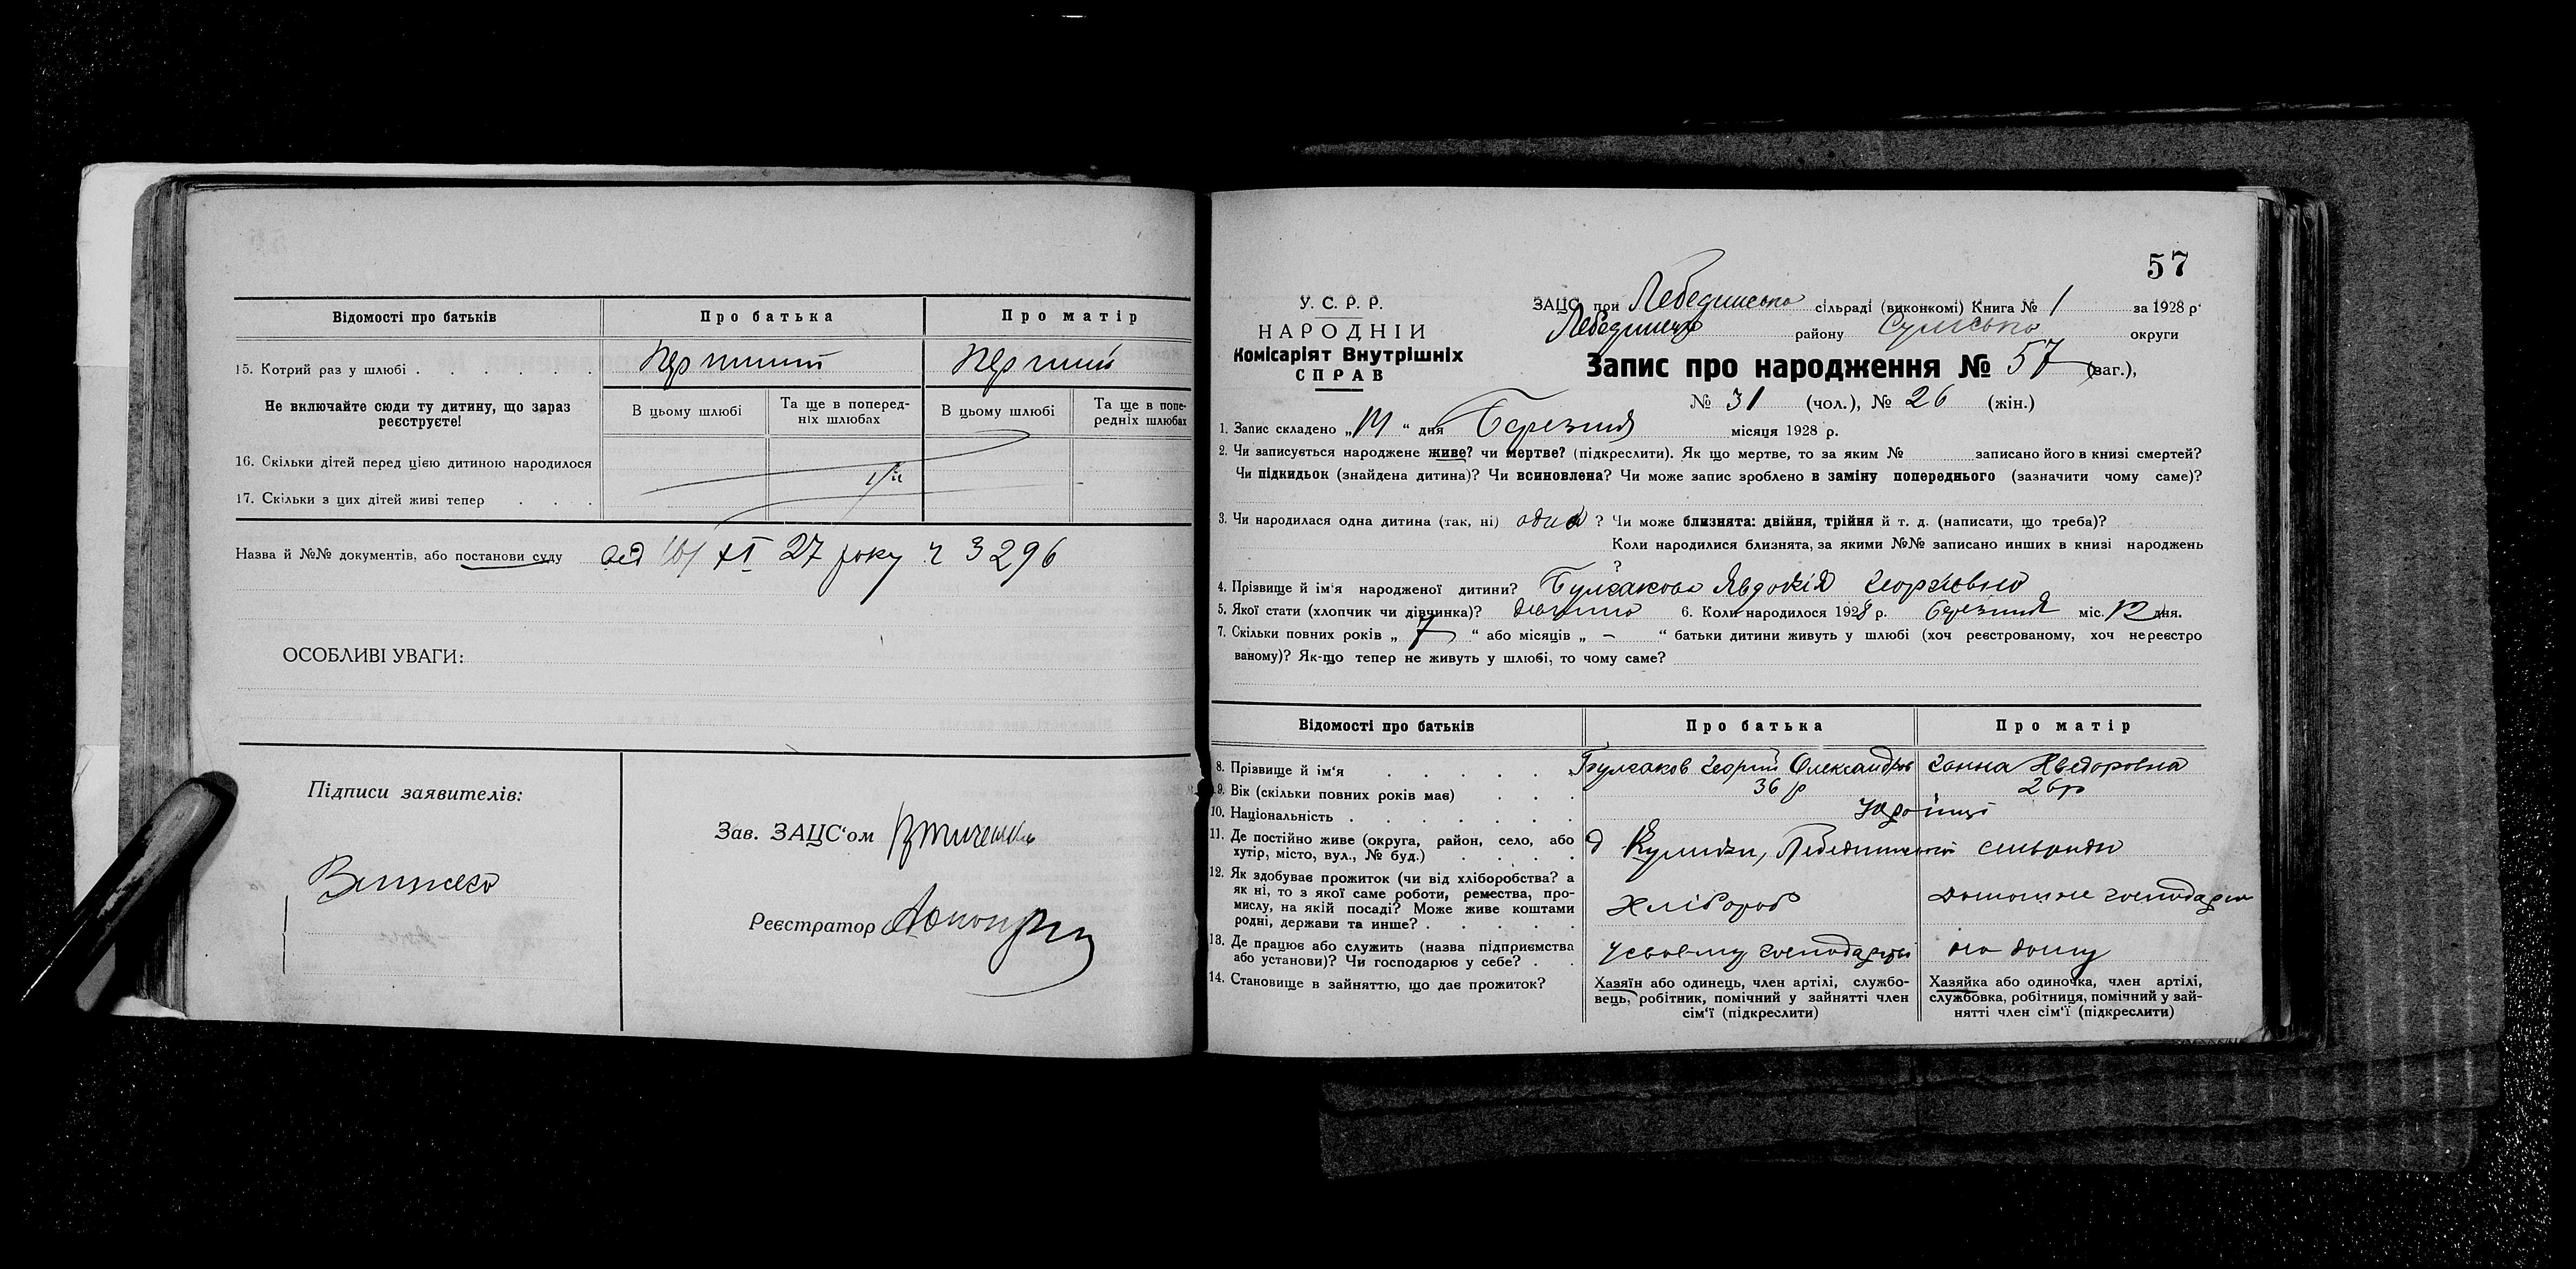 Відомості про батьків
Про батька
Про матір
15. Котрий раз у шлюбі . . . . . .
перший
перший
Не включайте сюди ту дитину, що зараз реєструєте!
В цьому шлюбі
Та ще в поперед-
ніх шлюбах
В цьому шлюбі
Та ще в попе-
редніх шлюбах
16. Скільки дітей перед цією дитиною народилося
17. Скільки з цих дітей живі тепер . . .
Назва й №№ документів, або постанови суду
XI 27 року ч 3296
ОСОБЛИВІ УВАГИ:
Підписи заявителів:
Зав. ЗАЦС'ом
Реєстратор
57
У. С. Р. Р.
НАРОДНІЙ
Комісаріят Внутрішніх
СПРАВ
ЗАЦС при Лебединсько сільраді (виконкомі) Книга № 1 за 1928 р.
району Сумсько округи
Запис про народження № 57 (заг.),
№ 31 (чол.), № 26 (жін.)
1. Запис складено „ “ дня Березня місяця 1928 р.
2. Чи записується народжене живе? чи мертве? (підкреслити). Як що мертве, то за яким № записано його в книзі смертей?
Чи підкидьок (знайдена дитина)? Чи всиновлена? Чи може запис зроблено в заміну попереднього (зазначити чому саме)?
3. Чи народилася одна дитина (так, ні) одна ? Чи може близнята: двійня, трійня й т. д. (написати, що треба)?
Коли народилися близнята, за якими №№ записано инших в книзі народжень
?
4. Прізвище й ім'я народженої дитини? Булгакова Явдокія Георгієвна
5. Якої стати (хлопчик чи дівчинка)? дівчина 6. Коли народилося 1928 р. березня міс. 12 дня.
7. Скільки повних років „ 7 “ або місяців „ – “ батьки дитини живуть у шлюбі (хоч реєстрованому, хоч нереєстро
ваному)? Як-що тепер не живуть у шлюбі, то чому саме?
Відомості про батьків
Про батька
Про матір
8. Прізвище й ім'я . . . . . .
Булгаков Георгій Олександров
Ганна Хведоровна
9. Вік (скільки повних років має) . . .
36 р
26 р
10. Національність . . . . . . .
Українці
11. Де постійно живе (округа, район, село, або
хутір, місто, вул., № буд.) . . . .
Лебединської сільради
12. Як здобуває прожиток (чи від хліборобства? а
як ні, то з якої саме роботи, ремества, про-
мислу, на якій посаді? Може живе коштами
родні, держави та инше? . . . . .
Хлібороб
Домашнє господарст
13. Де працює або служить (назва підприємства
або установи)? Чи господарює у себе? . .
У своєму господарстві
по дому
14. Становище в зайняттю, що дає прожиток?
Хазяїн або одинець, член артілі, службо-
вець, робітник, помічний у зайнятті член
сім'ї (підкреслити)
Хазяйка або одиночка, член артілі,
службовка, робітниця, помічний у зай-
нятті член сім'ї (підкреслити)